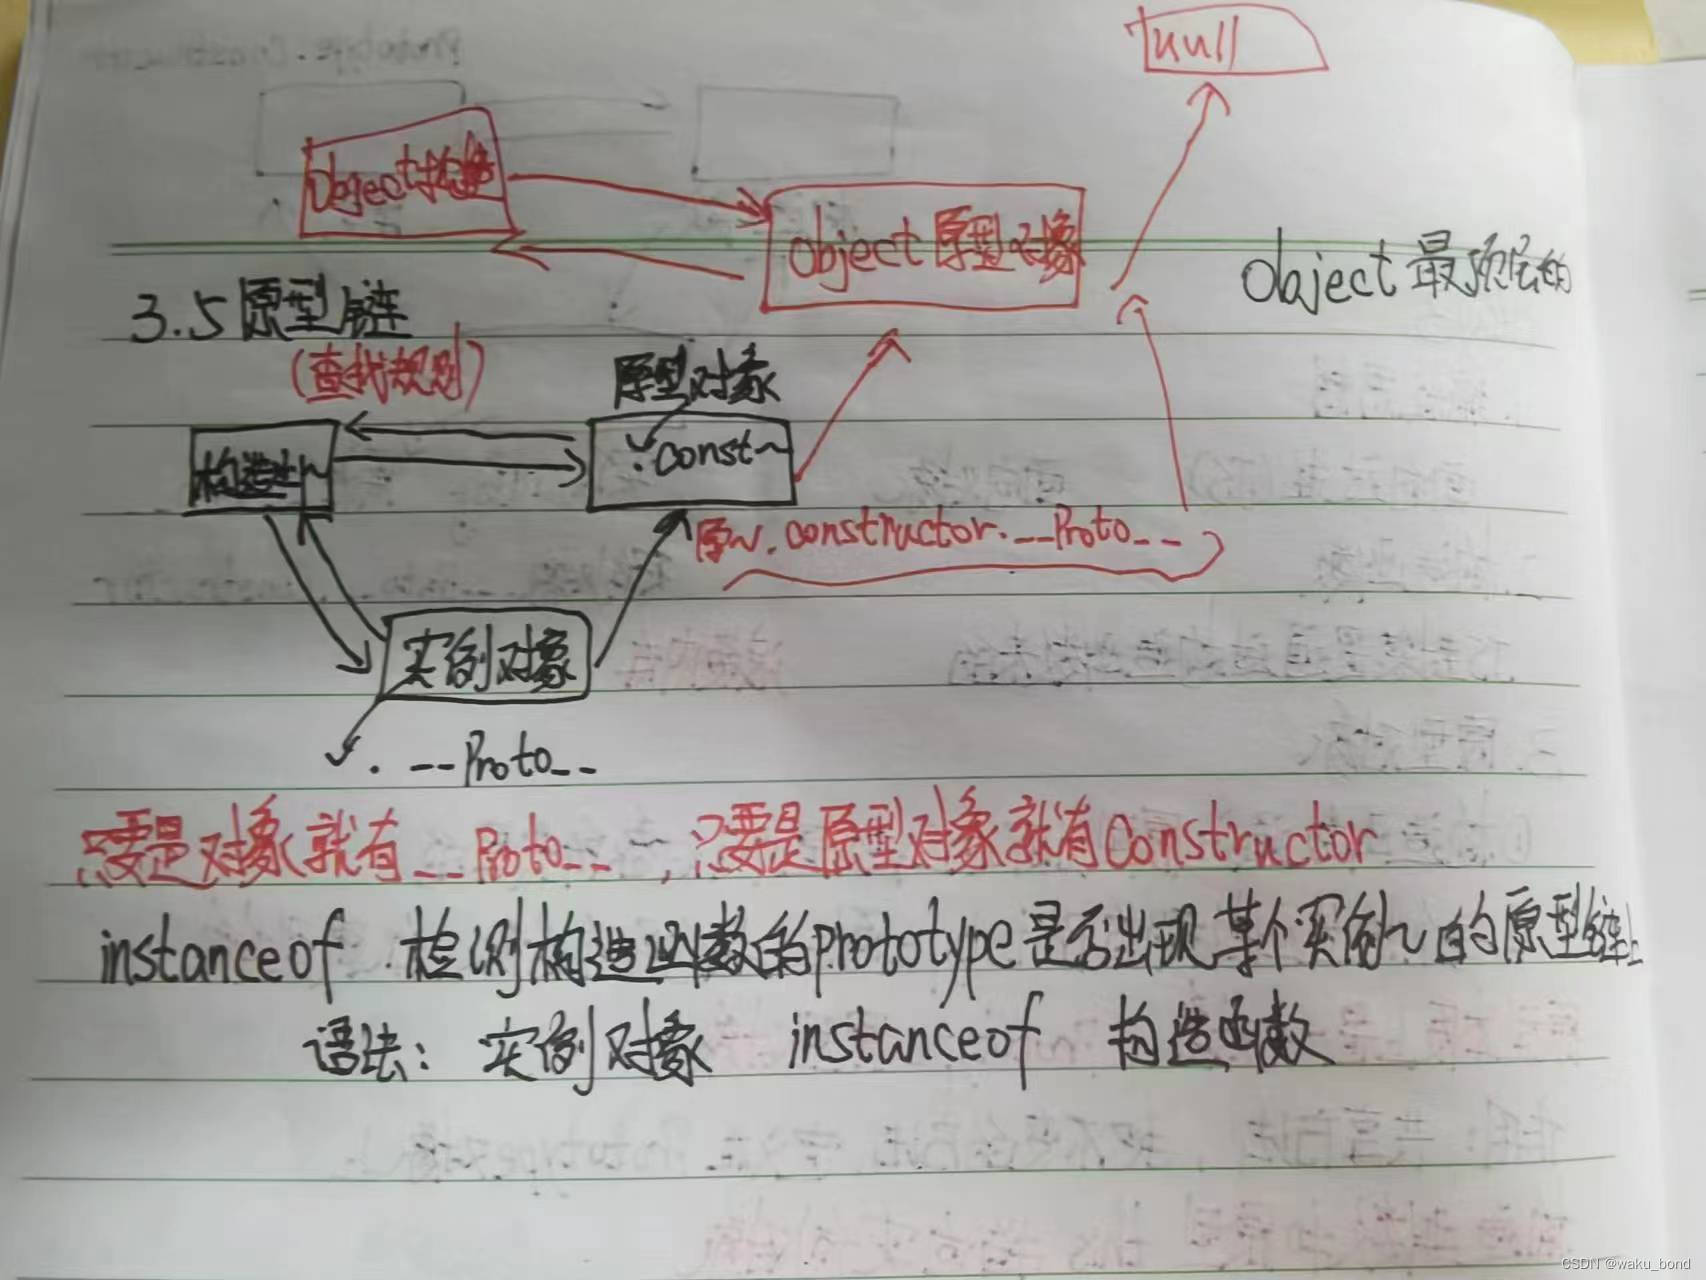 null
Object构造
Object 原型对象
Object 最顶层的
3.5 原型链
(查找规则)
原型对象
构造~
.const~
原~.constructor.__Proto__
实例对象
.__Proto__
只要是对象就有__Proto__，只要是原型对象就有Constructor
instanceof 检测构造函数的prototype是否出现某个实例~的原型链上
语法：实例对象 instanceof 构造函数
CSDN @waku_bond